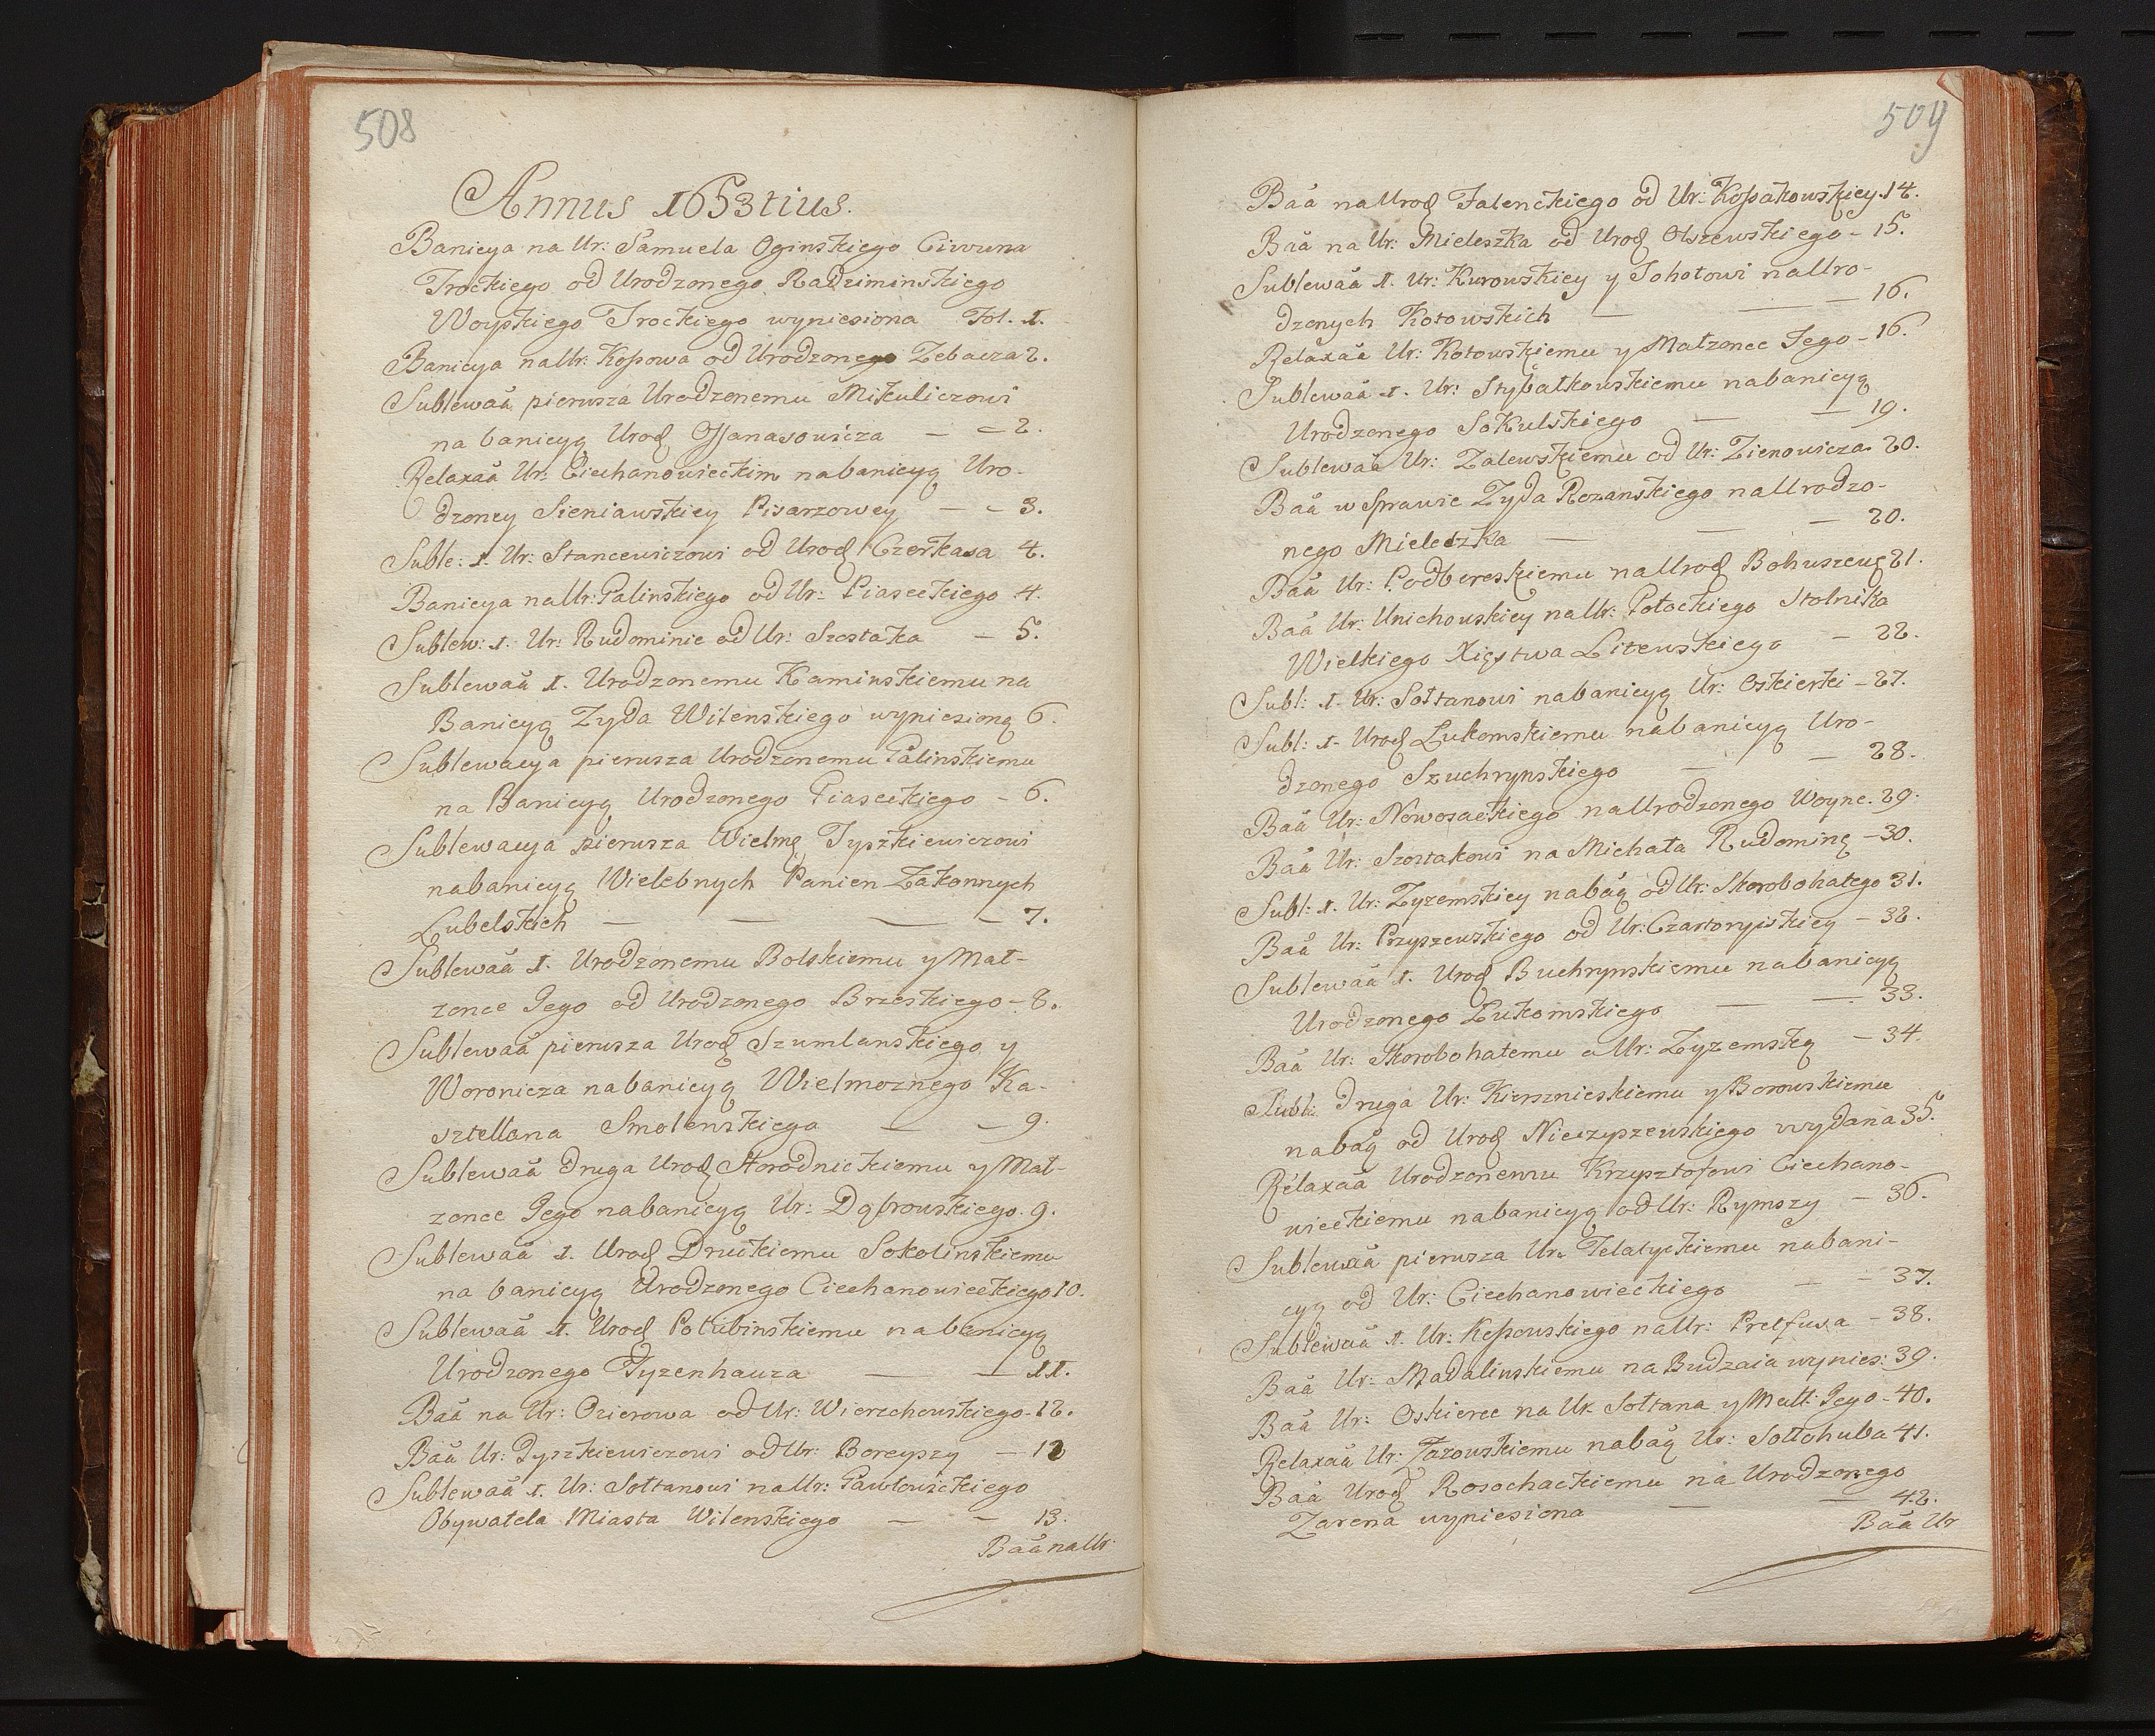 508
Annus 1653tius.
Banicya na Ur: Samuela Oginskiego Ciwuna
Trockiego od Urodzonego Radziminskiego
Woyskiego Trockiego wyniesiona Fol. 1.
Banicya na Ur: Kossowa od Urodzonego Zebacza 2.
Sublewaã pierusza Urodzonemu Mikuliczowi
na banicyą Urod Offanasowicza — — 2.
Relaxaã Ur: Ciechanowieckim na banicyą Uro-
dzoney Sieniawskiey Pisarzowey — — 3.
Suble: 1. Ur: Stancewiczowi od Urod Czerkasa 4.
Banicya na Ur: Palinskiego od Ur: Piaseckiego 4.
Sublew: 1. Ur: Rudominie od Ur: Szostaka — 5.
Sublewaã 1. Urodzonemu Kaminskiemu na
Banicyą Zyda Wilenskiego wyniesioną 6.
Sublewacya pierusza Urodzonemu Palinskiemu
na Banicyą Urodzonego Piaseckiego — 6.
Sublewacya pierusza Wielmę Tyszkiewiczowi
na banicyą Wielebnych Panien Zakonnych
Lubelskich — — — — 7.
Sublewaã 1. Urodzonemu Bolskiemu y Mał-
zonce Jego od Urodzonego Brzeskiego — 8.
Sublewaã pierusza Urod Szumlanskiego y
Woronicza na banicyą Wielmoznego Ka-
sztellana Smolenskiego — — 9.
Sublewaã druga Urod Horodnickiemu y Mał-
zonce Jego na banicyą Ur: Dąbrowskiego. 9.
Sublewaã 1. Urod Druckiemu Sokolinskiemu
na banicyą Urodzonego Ciechanowieckiego 10.
Sublewaã 1. Urod Połubinskiemu na banicyą
Urodzonego Tyzenhauza — — 11.
Baã na Ur: Ozierowa od Ur: Wierzchowskiego — 12.
Baã Ur: Tyszkiewiczowi od Ur: Boreyszy — 12
Sublewaã 1. Ur: Sołtanowi na Ur: Pawłowickiego
Obywatela Miasta Wilenskiego — — 13.
Baã na Ur
509
Baã na Urod Falenckiego od Ur: Kossakowskiey. 14.
Baã na Ur: Mieleszka od Urod Olszewskiego — 15.
Sublewaã 1. Ur: Kurowskiey y Tohotowi na Uro-
dzonych Kotowskich — — — 16.
Relaxaã Ur: Kotowskiemu y Małzonce Jego — 16.
Sublewaã 1. Ur: Stybałkowskiemu na banicyą
Urodzonego Sokulskiego — — 19.
Sublewaã Ur: Zalewskiemu od Ur: Zienowicza 20.
Baã w Sprawie Zyda Rozanskiego na Urodzo-
nego Mieleszka — — — 20.
Baã Ur: Podbereskiemu na Urod Bohuszewę 21.
Baã Ur: Unichowskiey na Ur: Potockiego Stolnika
Wielkiego Xięstwa Litewskiego — 22.
Subl: 1. Ur: Sołtanowi na banicyą Ur: Oskierki — 27.
Subl: 1. Urod Łukomskiemu na banicyą Uro-
dzonego Szuchrynskiego — — 28.
Baã Ur: Nowosackiego na Urodzonego Woyne. 29.
Baã Ur: Szostakowi na Michała Rudominę — 30.
Subl: 1. Ur: Zyzemskiey na baą od Ur: Skorobohatego 31.
Baã Ur: Przyszewskiego od Ur: Czartoryiskiey — 32.
Sublewaã 1. Urod Buchrynskiemu na banicyą
Urodzonego Łukomskiego — — 33.
Baã Ur: Skorobohatemu o Ur: Zyzemską — 34.
Subl: druga Ur: Kierznieskiemu y Borowskiemu
na baą od Urod Nieczyszewskiego wydana 35.
Relaxaã Urodzonemu Krzysztofowi Ciechano-
wieckiemu na banicyą od Ur: Rymszy — 36.
Sublewaã pierusza Ur: Telatyckiemu na bani-
cyą od Ur: Ciechanowieckiego — — 37.
Sublewaã 1. Ur: Kossowskiego na Ur: Prelfusa — 38.
Baã Ur: Madalinskiemu na Budzaia wynies: 39.
Baã Ur: Oskierce na Ur: Sołtana y Małż: Jego — 40.
Relaxaã Ur: Tarowskiemu na baą Ur: Sołłohuba 41.
Baã Urod Rosochackiemu na Urodzonego
Zarena wyniesiona — — 42.
Baã Ur